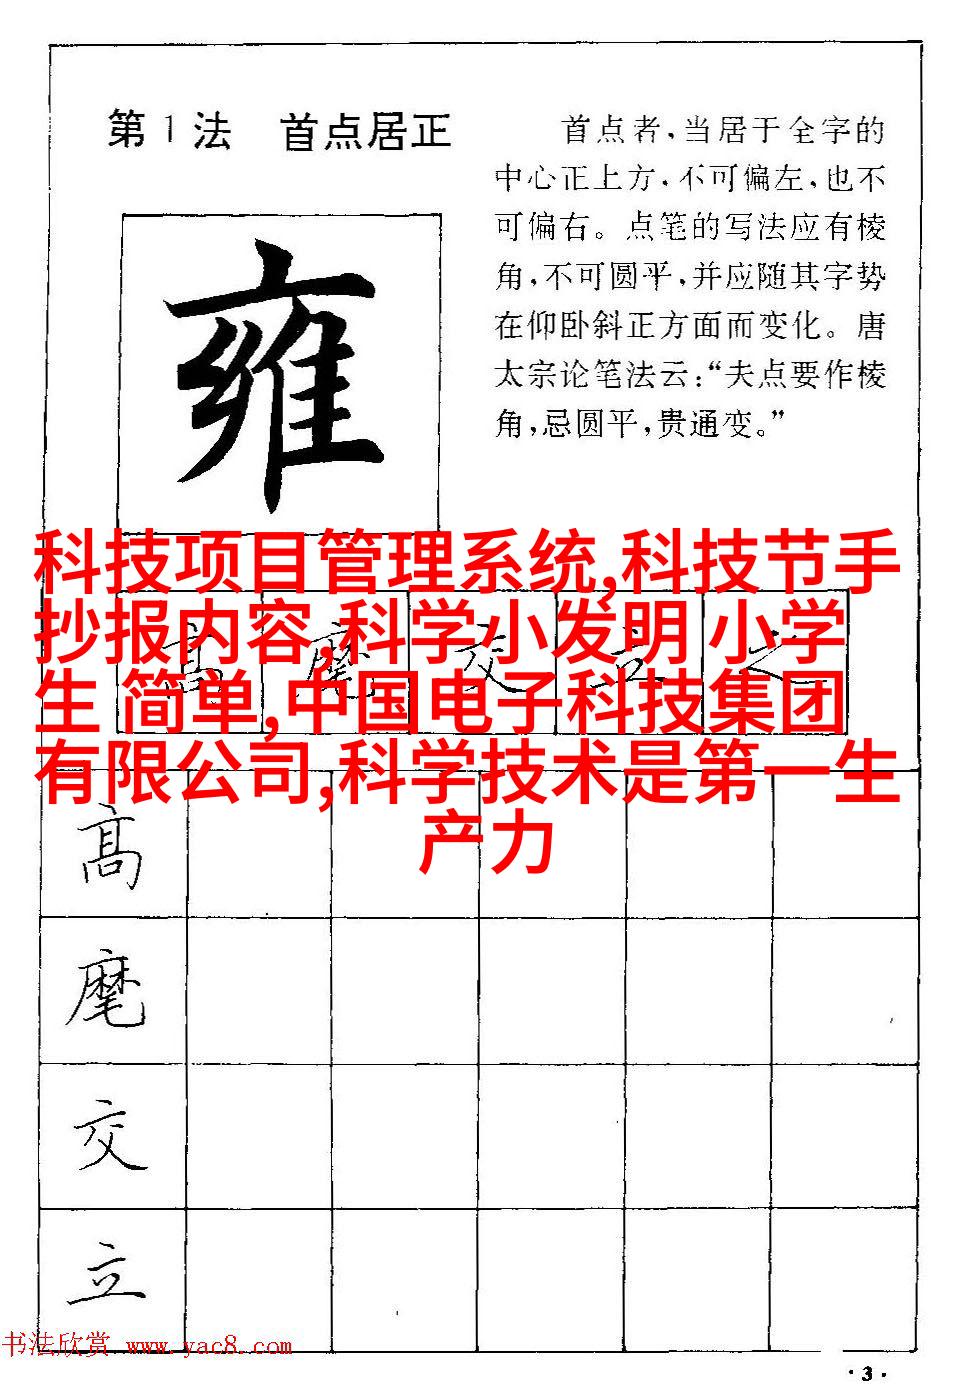 第1法 首点居正
首点者,当居于全字的
中心正上方,不可偏左,也不
可偏右。点笔的写法应有棱
角,不可圆平,并应随其字势
在仰卧斜正方面而变化。唐
太宗论笔法云:“夫点要作棱
角,忌圆平,贵通变。”
雍
科技项目管理系统,科技节手
抄报内容,科学小发明 小学
生 简单,中国电子科技集团
有限公司,科学技术是第一生
产力
高
麾
交
立
之
高
麾
交
立
书法欣赏 www.yac8.com
·3·